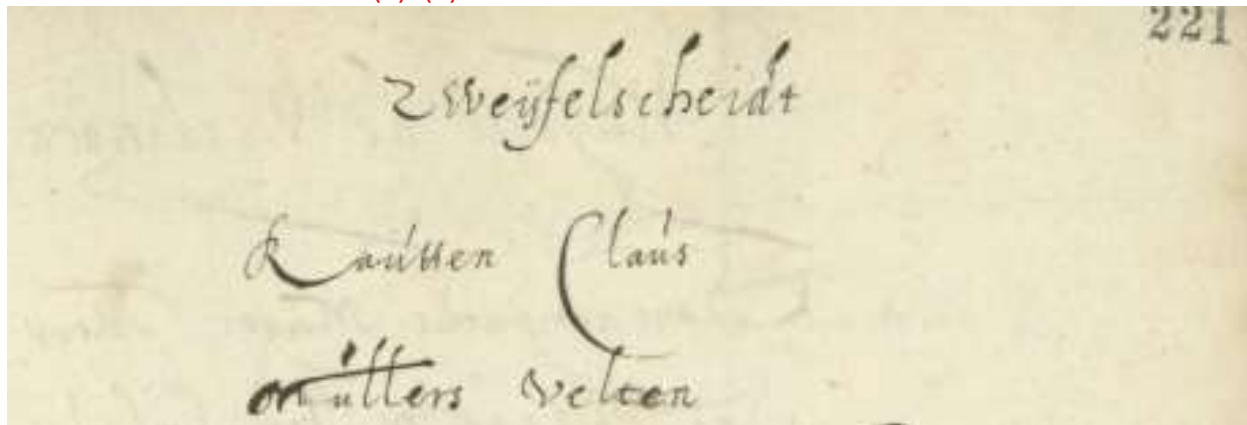 221
Zweÿfelscheidt
Rautten Claus
Müllers Velten